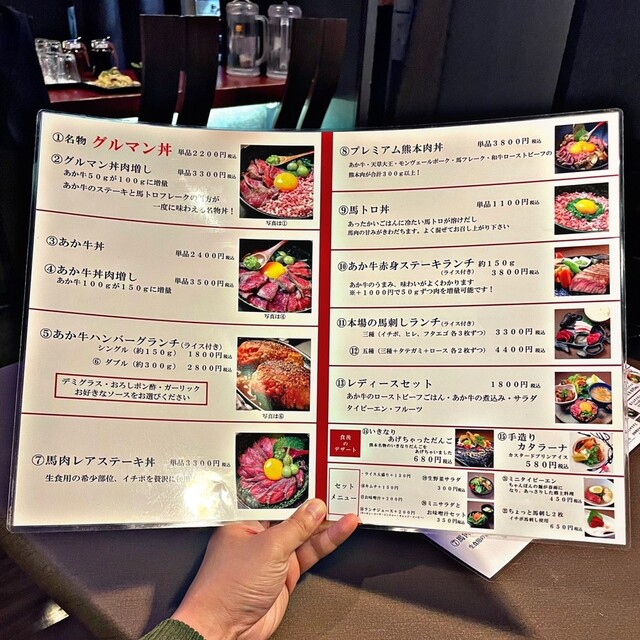 ①名物 グルマン丼 単品2200円税込
②グルマン丼肉増し 単品3300円税込
あか牛50gが100gに増量
あか牛のステーキと馬トロフレークの両方が
一度に味わえる名物丼！
写真は①
③あか牛丼 単品2400円税込
④あか牛丼肉増し 単品3500円税込
あか牛100gが150gに増量
写真は④
⑤あか牛ハンバーグランチ(ライス付き)
シングル(約150g) 1800円税込
⑥ダブル(約300g) 2800円税込
デミグラス・おろしポン酢・ガーリック
お好きなソースをお選びください
写真は⑥
⑦馬肉レアステーキ丼 単品3300円税込
生食用の希少部位、イチボを贅沢に使用
⑧プレミアム熊本肉丼 単品3800円税込
あか牛・天草大王・モンヴェールポーク・馬フレーク・和牛ローストビーフの
熊本肉が合計300g以上！
⑨馬トロ丼 単品1100円税込
あったかいごはんに冷たい馬トロが溶けだし
馬肉の甘みがきわだちます。よく混ぜてお召し上がり下さい
⑩あか牛赤身ステーキランチ 約150g
(ライス付き) 3800円税込
あか牛のうまみ、味わいがよくわかります
※+1000円で50gずつ肉を増量可能です！
⑪本場の馬刺しランチ(ライス付き)
三種(イチボ、ヒレ、フタエゴ 各3枚ずつ) 3300円税込
⑫五種(三種+タテガミ+ロース 各2枚ずつ) 4400円税込
⑬レディースセット 1800円税込
あか牛のローストビーフごはん・あか牛の煮込み・サラダ
タイピーエン・フルーツ
食後のデザート
⑭いきなり
あげちゃっただんご
熊本名物のいきなりだんごを
あげちゃいました
680円税込
⑮手造り
カタラーナ
カスタードブリンアイス
580円税込
セットメニュー
⑲生野菜サラダ
300円税込
⑳ミニサラダと
お味噌汁セット
350円税込
㉑ミニタイピーエン
ちゃんぽんの麺が春雨に
なり、あっさりした郷土料理
450円税込
㉒ちょっと馬刺し2枚
イチボ馬刺し使用 650円税込